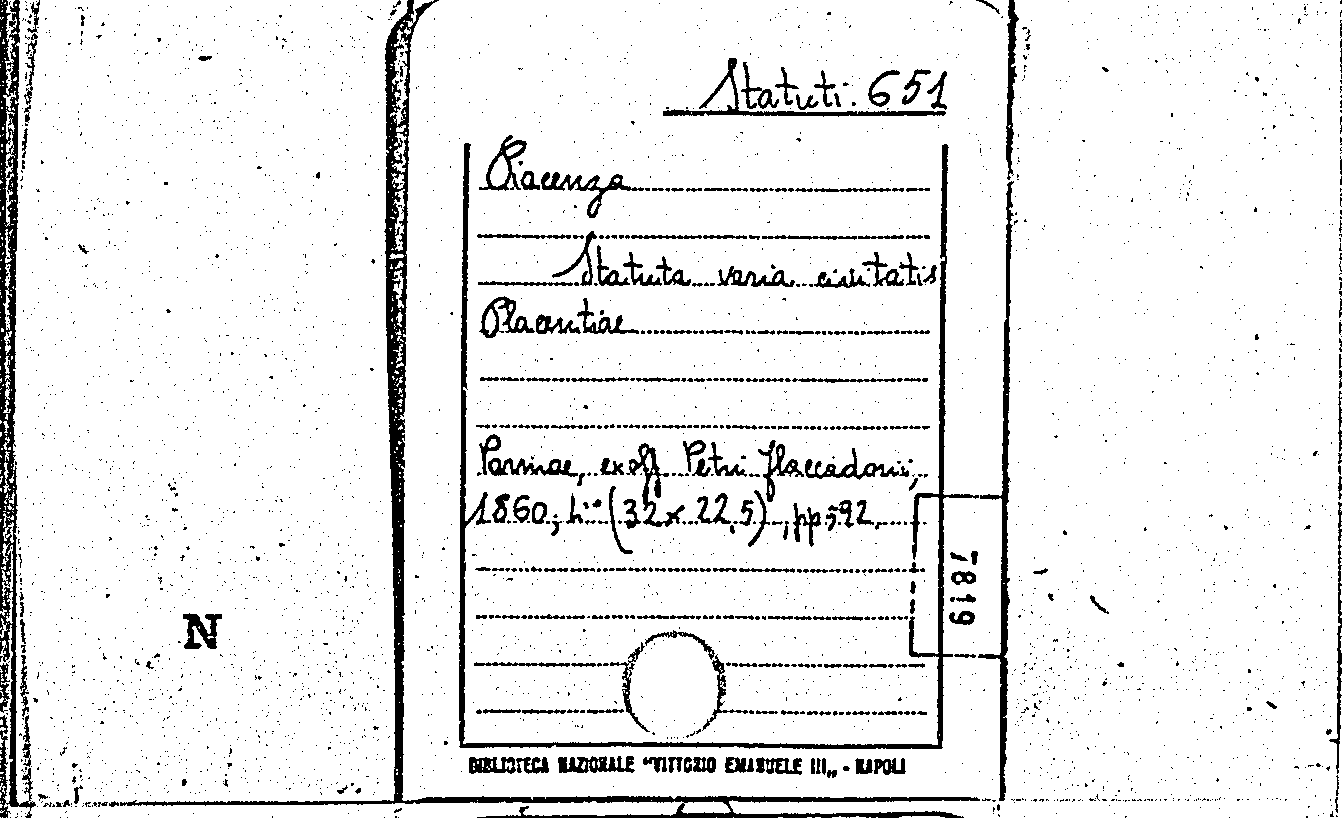 Statuti. 651
Piacenza
Statuta varia civitatis
Placentiae
Parmae, ex off Petri Fiaccadorii,
1860; 4° (32 x 22,5), pp 592.
7819
N
BIBLIOTECA NAZIONALE "VITTORIO EMANUELE III„ - NAPOLI